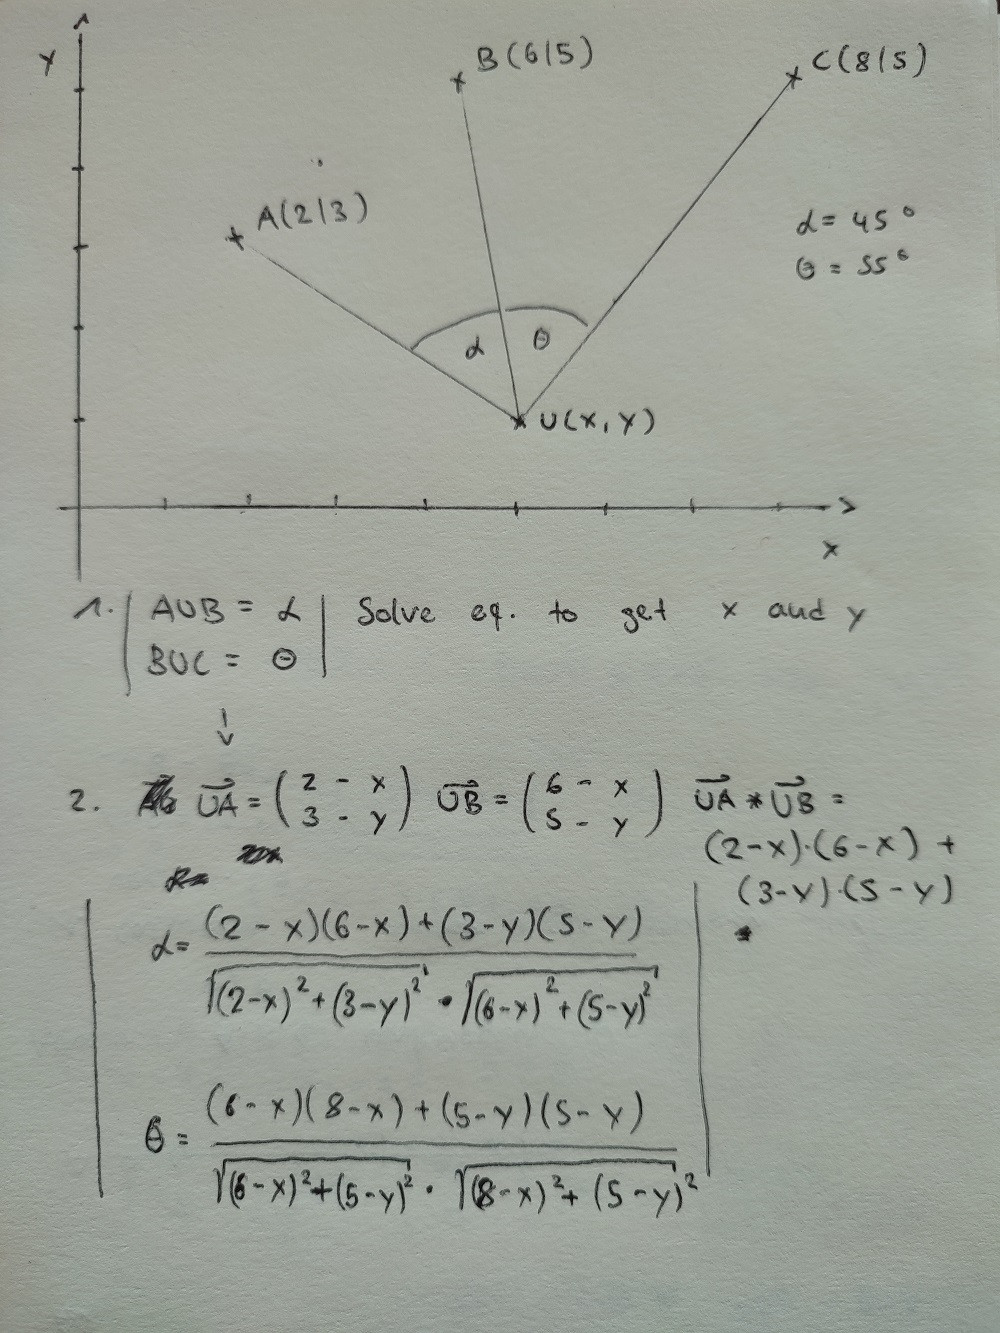 Y
B(6|5)
C(8|5)
A(2|3)
α = 45°
θ = 55°
α
θ
U(x, y)
x
1. | AUB = α | Solve eq. to get x and y
BUC = θ
↓
2. UA = (2 - x / 3 - y) UB = (6 - x / 5 - y) UA * UB =
(2-x)·(6-x) +
(3-y)·(5-y)
α = (2-x)(6-x)+(3-y)(5-y)
√(2-x)²+(3-y)² · √(6-x)²+(5-y)²
θ = (6-x)(8-x)+(5-y)(5-y)
√(6-x)²+(5-y)² · √(8-x)²+(5-y)²